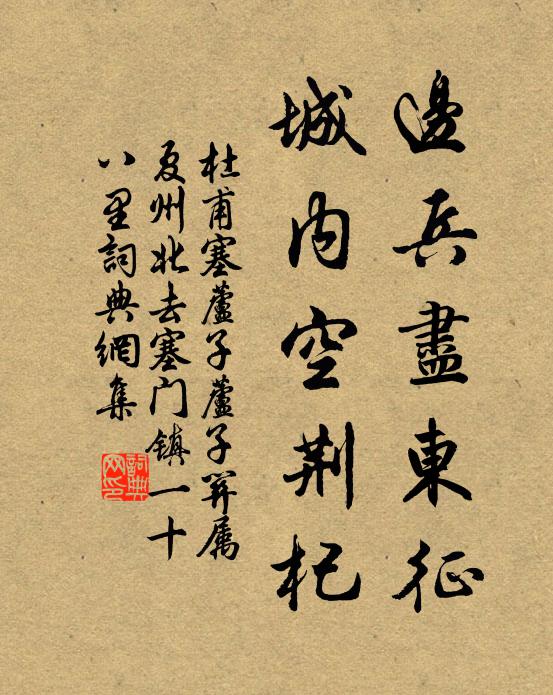 邊兵盡東征
城内空荆杞
杜甫塞蘆子蘆子関属
夏州北去塞门镇一十
八里詞典網集
詞典网印